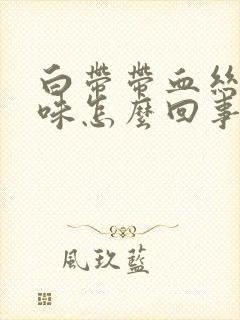 白帶帶血絲
味怎麼回事
風玖藍